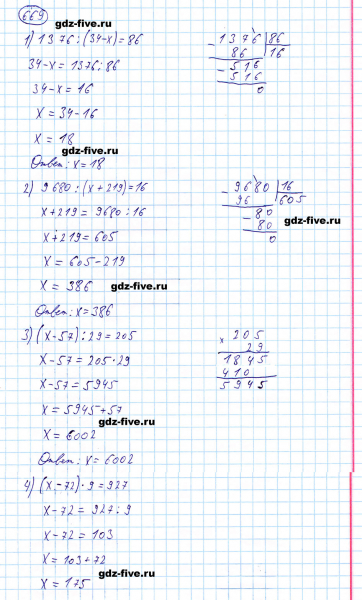 669
gdz-five.ru
1) 1376 : (34-x) = 86
34-x = 1376 : 86
34-x = 16
x = 34-16
x = 18
gdz-five.ru
Ответ: x = 18
- 1376 | 86
86 | 16
- 516
516
0
2) 9680 : (x + 219) = 16
x + 219 = 9680 : 16
x + 219 = 605
x = 605 - 219
x = 386
gdz-five.ru
Ответ: x = 386
- 9680 | 16
96 | 605
- 80
80
0
gdz-five.ru
3) (x - 57) : 29 = 205
x - 57 = 205 · 29
x - 57 = 5945
x = 5945 + 57
gdz-five.ru
x = 6002
Ответ: x = 6002
× 205
29
1845
410
5945
4) (x - 72) · 9 = 927
gdz-five.ru
x - 72 = 927 : 9
x - 72 = 103
x = 103 + 72
gdz-five.ru
x = 175